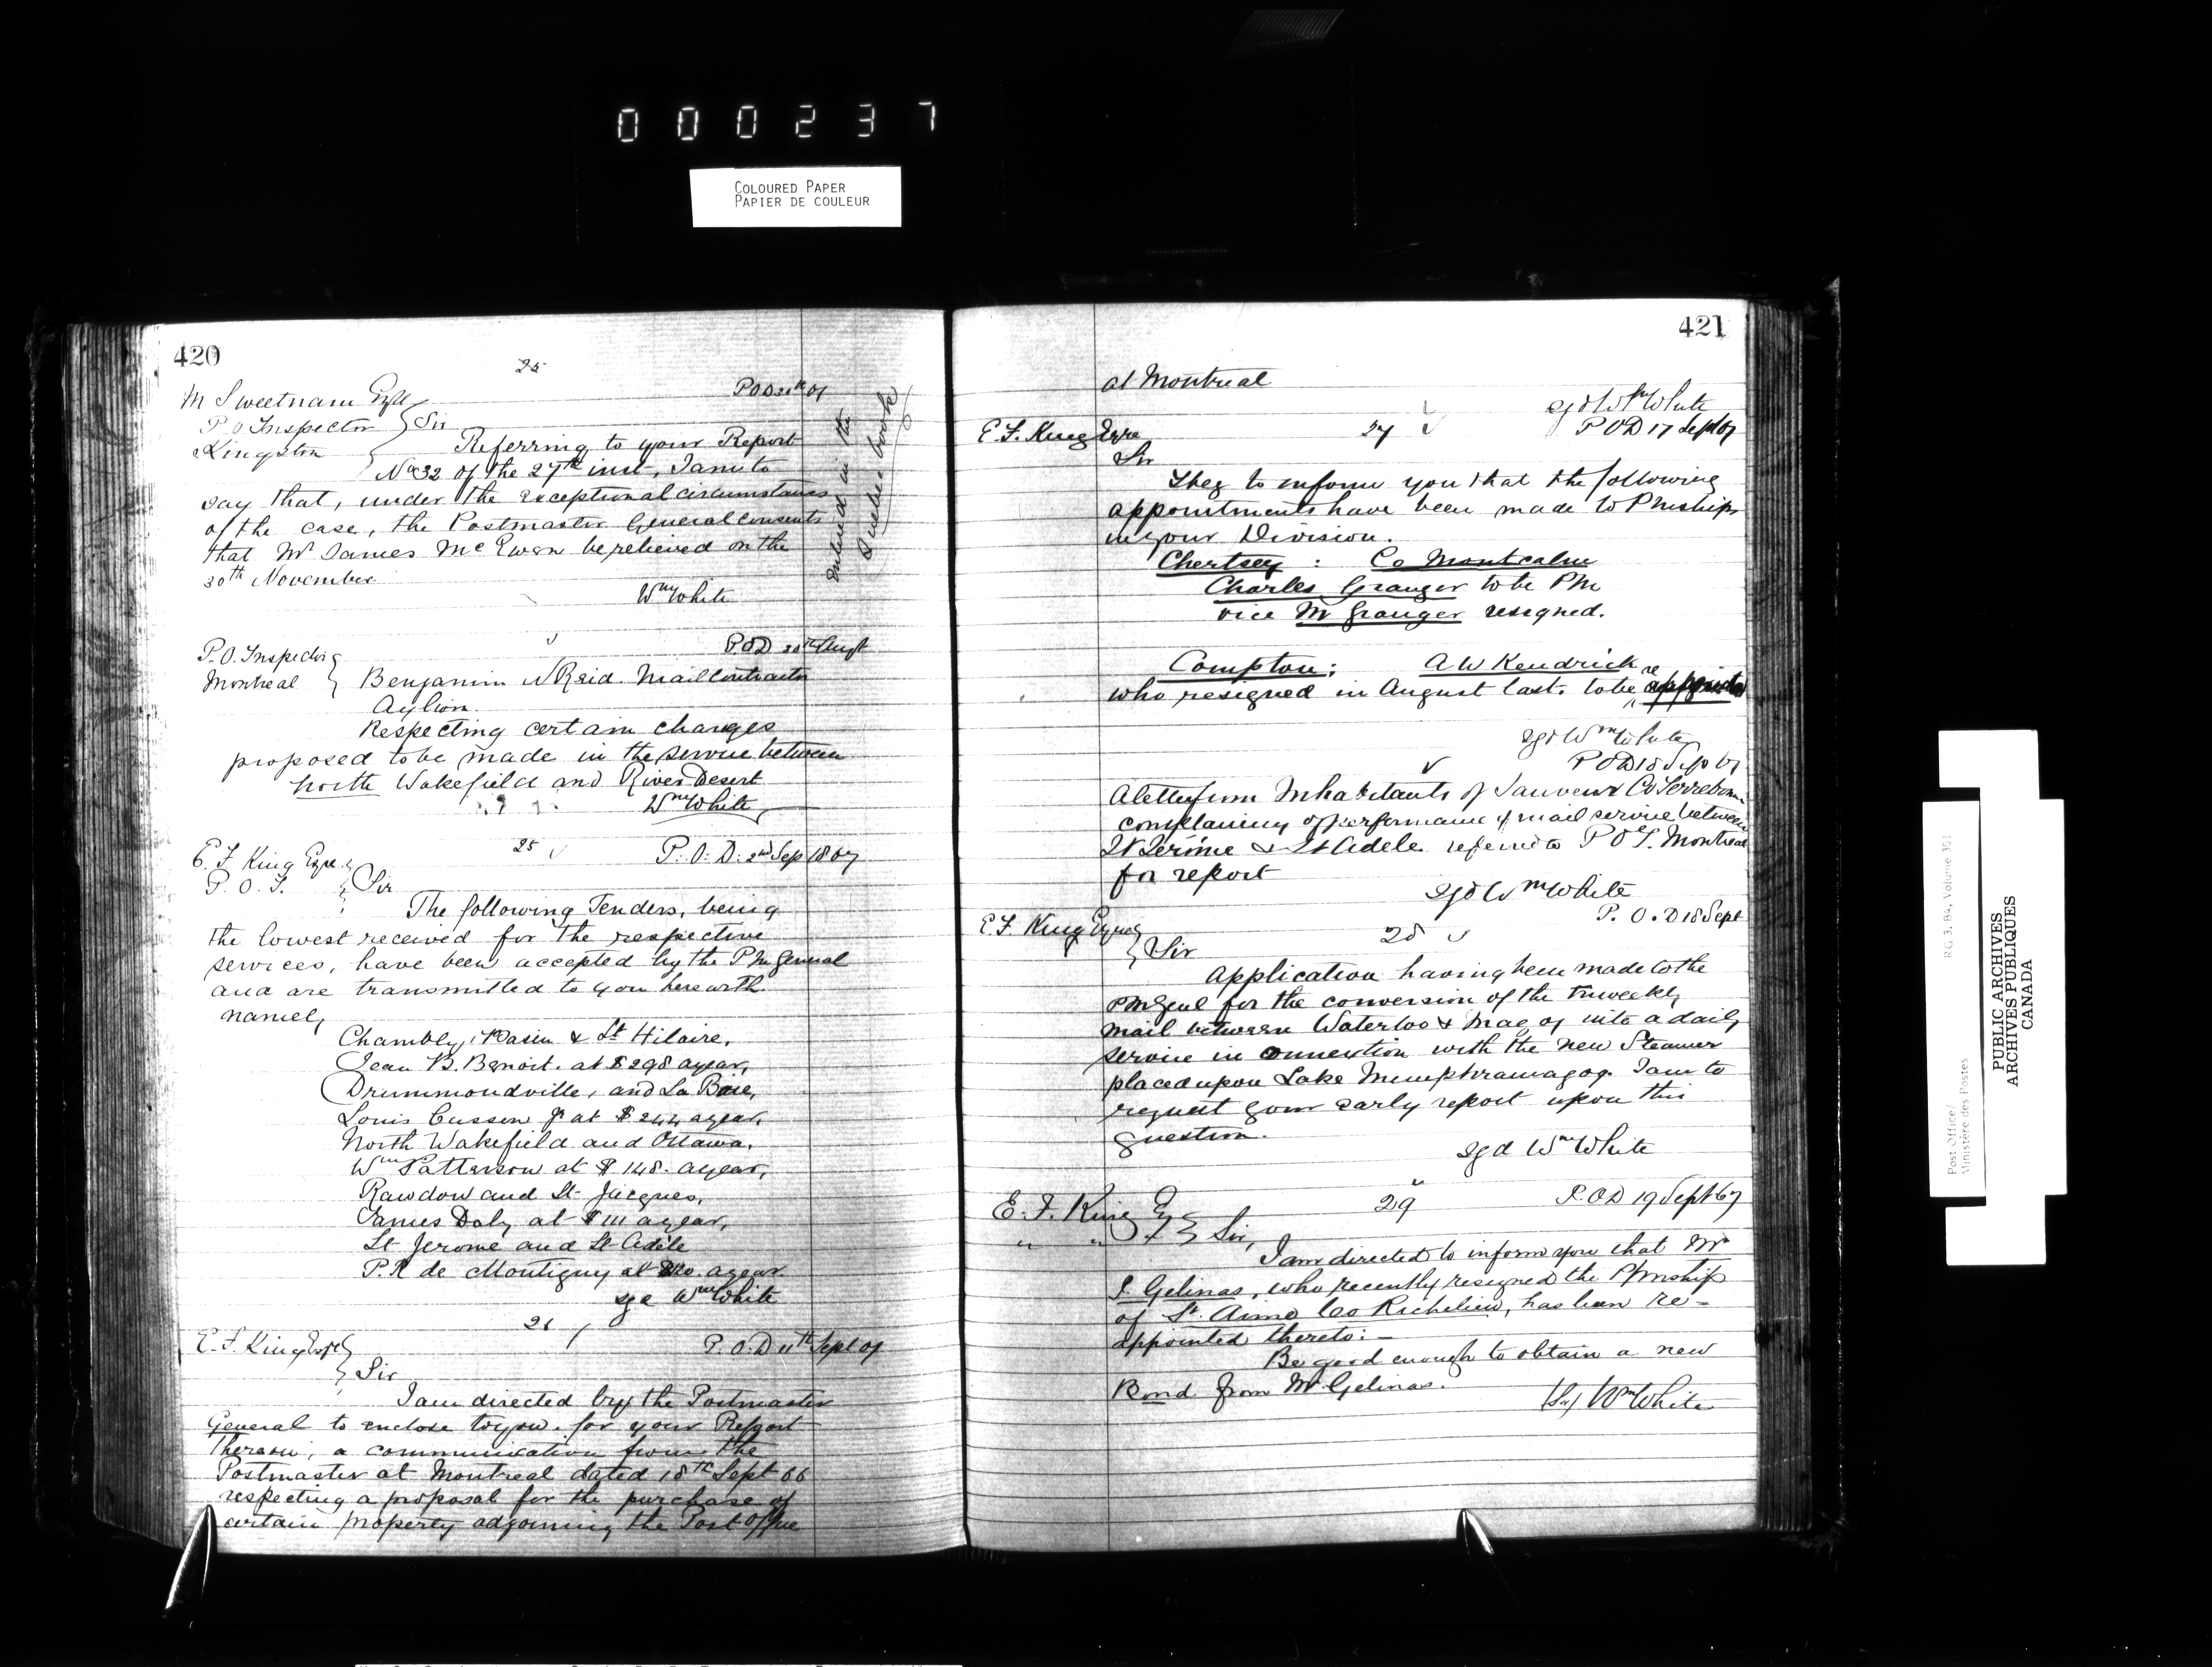 000237
COLOURED PAPER
PAPIER DE COULEUR
420
25
M Sweetnam Esqre
P O Inspector } Sir
Kingston
Referring to your Report
No 32 of the 27th inst, I am to
say that, under the exceptional circumstances
of the case, the Postmaster General consents
that Mr James McEwen be relieved on the
30th November
Wm White
Entered in the
Quebec book
P.O. Inspector
Montreal
P.O.D 30th Augt
Benjamin N Reid. Mail Contractor
Aylion.
Respecting certain changes
proposed to be made in the service between
North Wakefield and River Desert
Wm White
25
P. O. D. 2nd Sep 1867
E. F King Esqre
P. O. I. } Sir
The following Tenders, being
the lowest received for the respective
services, have been accepted by the P M General
and are transmitted to you herewith
namely
Chambly, Basin & St Hilaire,
Jean B. Benoit. at $298 a year,
Drummondville, and La Baie,
Louis Cusson Jr at $244 a year,
North Wakefield and Ottawa,
Wm Patterson at $148. a year,
Rawdow and St- Jacques,
James Daly at $111 a year,
St Jerome and St Adèle
P.R de Montigny at a year.
sgd Wm White
26
P. O. D 11th Sept 67
E. F. King Esqre
} Sir
I am directed by the Postmaster
General to enclose to you. for your Report
thereon; a communication from the
Postmaster at Montreal dated 18th Sept 66
respecting a proposal for the purchase of
certain property adjoining the Post Office
421
at Montreal
sgd Wm White
E. F. King Esqre
27
P O D 17 Sept 67
Sir
I beg to inform you that the following
appointments have been made to Pmships
in your Division.
Chertsey : Co Montcalm
Charles Granger to be PM
vice M Granger resigned.
Compton; A W Kendrick
who resigned in August last. to be re appointed
sgd Wm White
P O D 18 Sep 67
A letter from Inhabitants of Sauveur Co Terrebonne
complaining of performance of mail service between
St Jerôme & St Adele referred to P O I. Montreal
for report
sgd Wm White
P. O. D 18 Sept
E. F. King Esqre
28
} Sir
Application having been made to the
PM Genl for the conversion of the triweekly
mail between Waterloo & Magog into a daily
service in connection with the new Steamer
placed upon Lake Memphramagog I am to
request your early report upon this
question.
sgd Wm White
29
P. O. D 19 Sept 67
E. F. King Esq
" " } Sir,
I am directed to inform you that Mr
S. Gelinas, who recently resigned the P/mship
of St. Aimé Co Richelieu, has been re-
appointed thereto:-
Be good enough to obtain a new
Bond from Mr Gelinas.
(Sd) Wm White
RG 3, B4, Volume 301
Post Office/
Ministère des Postes
PUBLIC ARCHIVES
ARCHIVES PUBLIQUES
CANADA